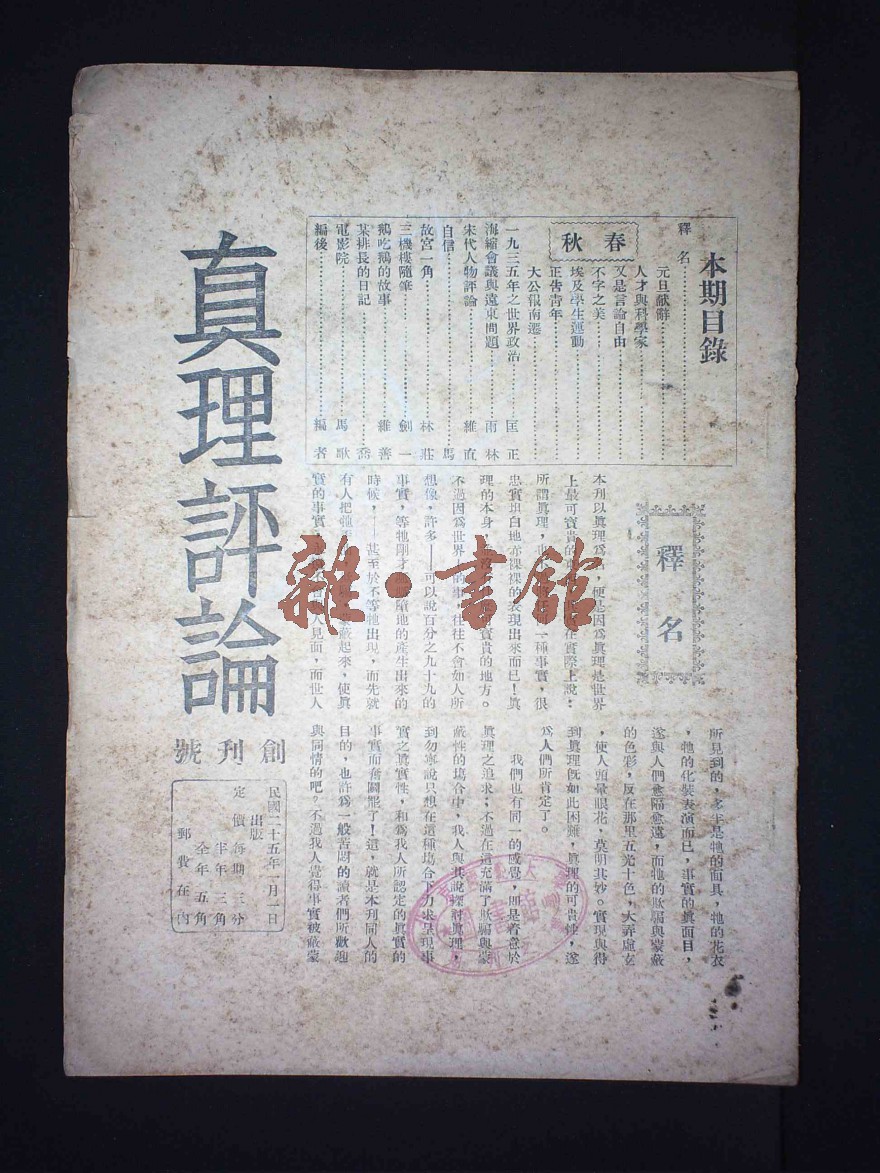 真理評論
創刊號
民國二十五年一月一日
出版
定價每期三分
半年三角
全年五角
郵費在內
本期目錄
釋名
春秋
元旦献辭
人才與科學家
又是言論自由
不字之美
埃及學生運動
正告青年
大公報南遷
一九三五年之世界政治 匡正
海縮會議與遠東問題 雨林
宋代人物評論 維直
自信 馬
故宮一角 林莊
三機樓隨筆 劍一
鵝吃鵝的故事 維善
某排長的日記 喬
電影院 馬歌
編後 編者
釋名
本刊以眞理爲名,便是因爲眞理是世界
上最可寶貴的
在實際上說:
所謂眞理,
一種事實,很
忠實坦白地亦裸裸的表現出來而已!眞
理的本身
寶貴的地方。
不過因爲世界
的事,往往不會如人所
想像,許多——可以說百分之九十九的
事實,等牠剛才
墮地的產生出來的
時候,——甚至於不等牠出現,而先就
有人把牠
蒙蔽起來,使眞
實的事實
人見面,而世人
所見到的,多半是牠的面具,牠的花衣
,牠的化裝表演而已,事實的眞面目,
遂與人們愈隔愈遠,而牠的欺騙與蒙蔽
的色彩,反在那里五光十色,大弄虛玄
,使人頭暈眼花,莫明其妙。實現與得
到眞理既如此困難,眞理的可貴性,遂
爲人們所肯定了。
我們也有同一的感覺,即是着意於
眞理之追求;不過在這充滿了欺騙與蒙
蔽性的場合中,我人與其說探討眞理,
到勿寧說只想在這種場合下力求呈現事
實之眞實性,和爲我人所認定的眞實的
事實而奮鬬罷了!這,就是本刊同人的
目的,也許爲一般苦悶的讀者們所歡迎
與同情的吧。不過我人覺得事實被蔽蒙
雜·書館
圖書館